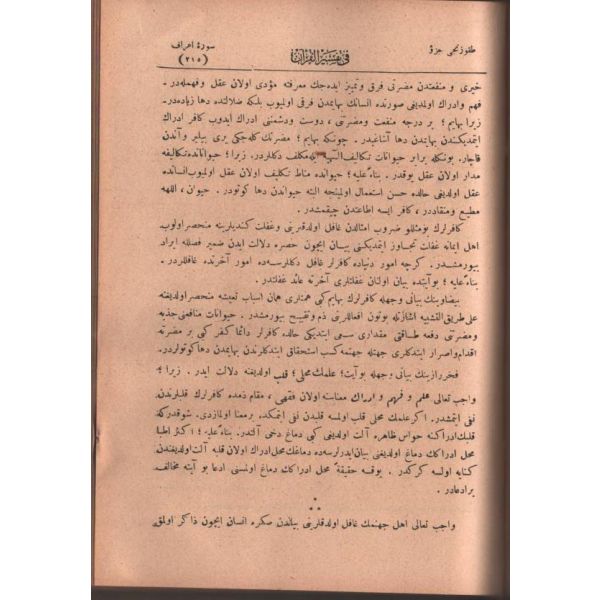 طقوزنجی جزؤ
فی تفسیر القرآن
سورۀ اعراف
(٢١٥)
خیری و منفعتدن مضرتی فرق و تمییز ایده‌جك معرفته مؤدی اولان عقل و فهمله‌در ـ
فهم و ادراك اولمدیغی صورتده انسانك بهایمدن فرقی اولمیوب بلكه ضلالتده دها زیاده‌در ـ
زیرا بهایم ؛ بر درجه منفعت ومضرتی ، دوست ودشمنی ادراك ایدوب كافر ادراك
ایتمدیكندن بهایمدن دها آشاغیدر . چونكه بهایم ؛ مضرتك كله‌جكی یری بیلیر وآندن
قاچار. بونكله برابر حیوانات تكالیف الهیه ایله مكلف دكلدر. زیرا ؛ حیواناتده تكالیفه
مدار اولان عقل یوقدر . بناءً علیه ؛ حیوانده مناط تكلیف اولان عقل اولمیوب انسانده
عقل اولدیغی حالده حسن استعمال اولنمینجه البته حیواندن دها كوتودر . حیوان ، اللهه
مطیع ومنقاددر ، كافر ایسه اطاعتدن چیقمشدر .
كافرلرك بومثللو ضروب امثالدن غافل اولدقلرینی وغفلت كندیلرینه منحصر اولوب
اهل ایمانه غفلت تجاوز ایتمدیكنی بیان ایچون حصره دلالت ایدن ضمیر فصله ایراد
بیورمشدر . كرچه امور دنیاده كافرلر غافل دكللرسه‌ده امور آخرتده غافللردر .
بناءً علیه ؛ بوآیتده بیان اولنان غفلتلری آخرته عائد غفلتدر .
بیضاوینك بیانی وجهله كافرلرك بهایم كبی همتلری همان اسباب تعیشه منحصر اولدیغنه
علی طریق التشبیه اشارتله بوتون افعاللرینی ذم وتقبیح بیورمشدر . حیوانات منافعی جذبه
ومضرتی دفعه طاقتی مقداری سعی ایتدیكی حالده كافرلر دائما كفر كبی بر مضرته
اقدام واصرار ایتدكلری جهتله جهنمه كسب استحقاق ایتدكلرندن بهایمدن دها كوتولردر.
فخر رازینك بیانی وجهله بو آیت ؛ علمك محلی ؛ قلب اولدیغنه دلالت ایدر . زیرا ؛
واجب تعالی علم و فهم و ادراك معناسنه اولان فقهی ، مقام ذمده كافرلرك قلبلرندن
نفی ایتمشدر. اكر علمك محلی قلب اولمسه قلبدن نفی ایتمكده برمعنا اولمازدی. شوقدركه
قلبك ادراكنه حواس ظاهره آلت اولدیغی كبی دماغ دخی آلتدر. بناءً علیه ؛ اكثر اطبا
محل ادراكك دماغ اولدیغنی بیان ایدرلرسه‌ده دماغك محل ادراك اولان قلبه آلت اولدیغندن
كنایه اولسه كركدر . یوقسه حقیقةً محل ادراكك دماغ اولمسنی ادعا بو آیته مخالف
برادعادر .
واجب تعالی اهل جهنمك غافل اولدقلرینی بیاندن صكره انسان ایچون ذاكر اولمق